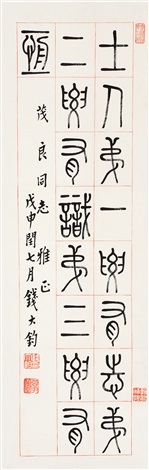 士人弟一要有志弟
二要有識弟三要有
恆
茂良同志雅正
戊申閏七月錢大鈞